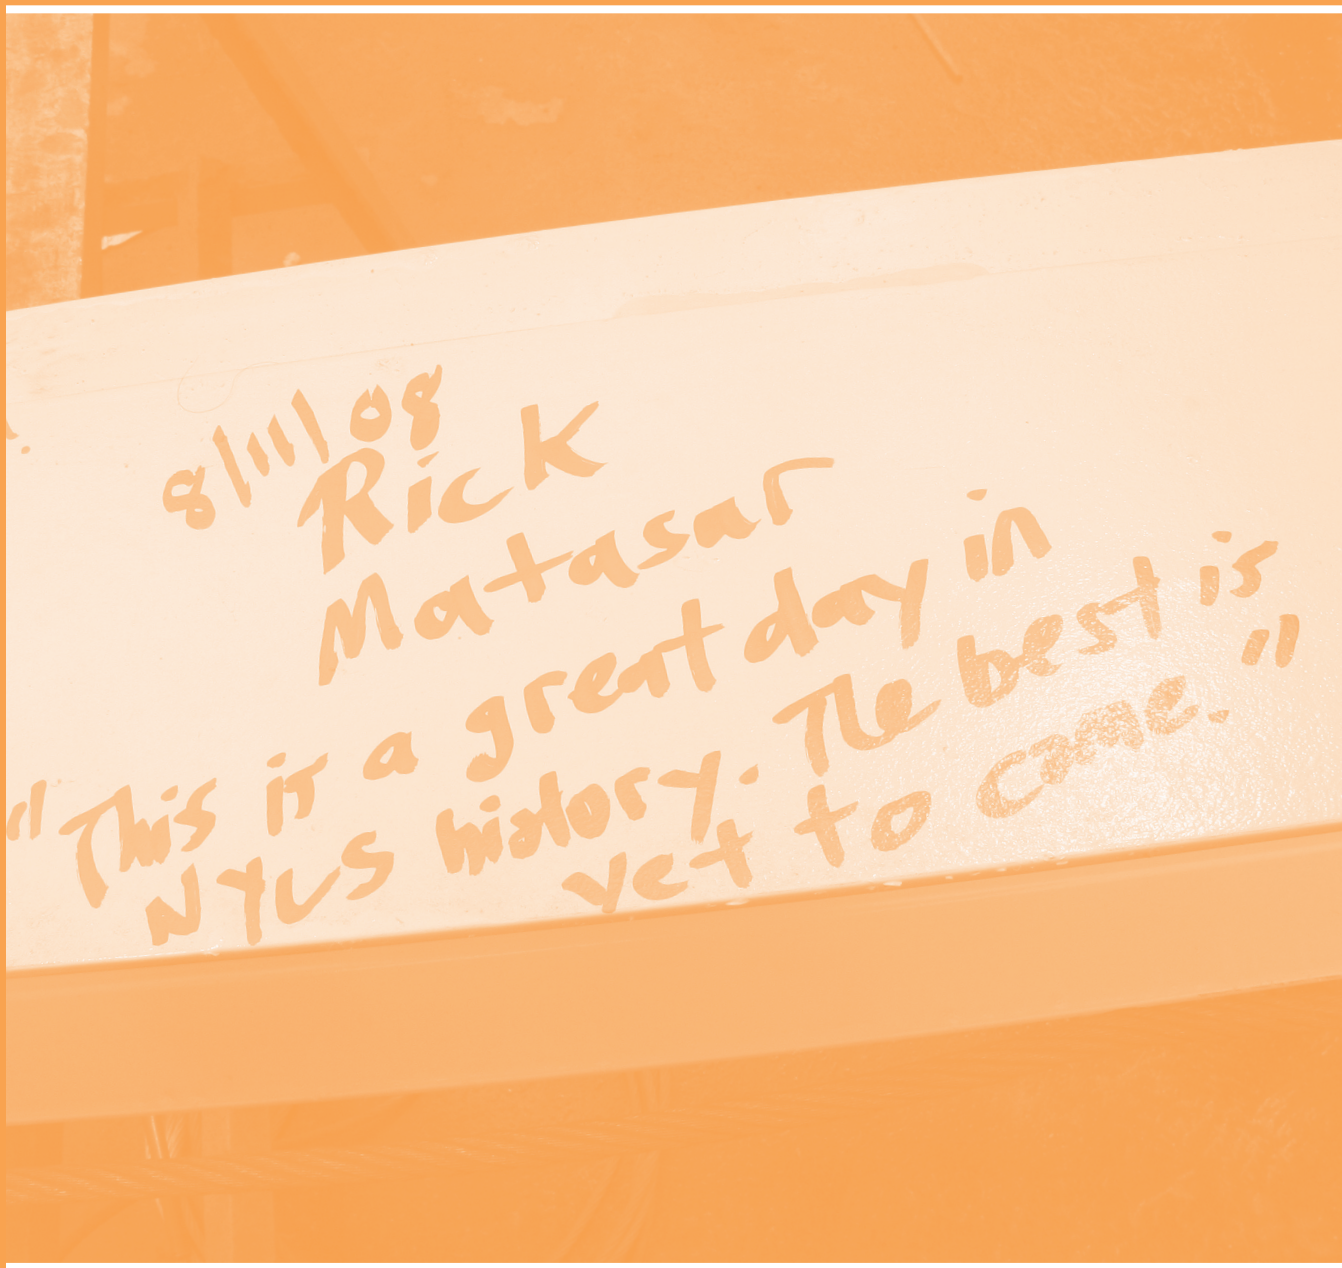 8/11/08
Rick
Matasar
"This is a great day in
NYLS history. The best is
yet to come."